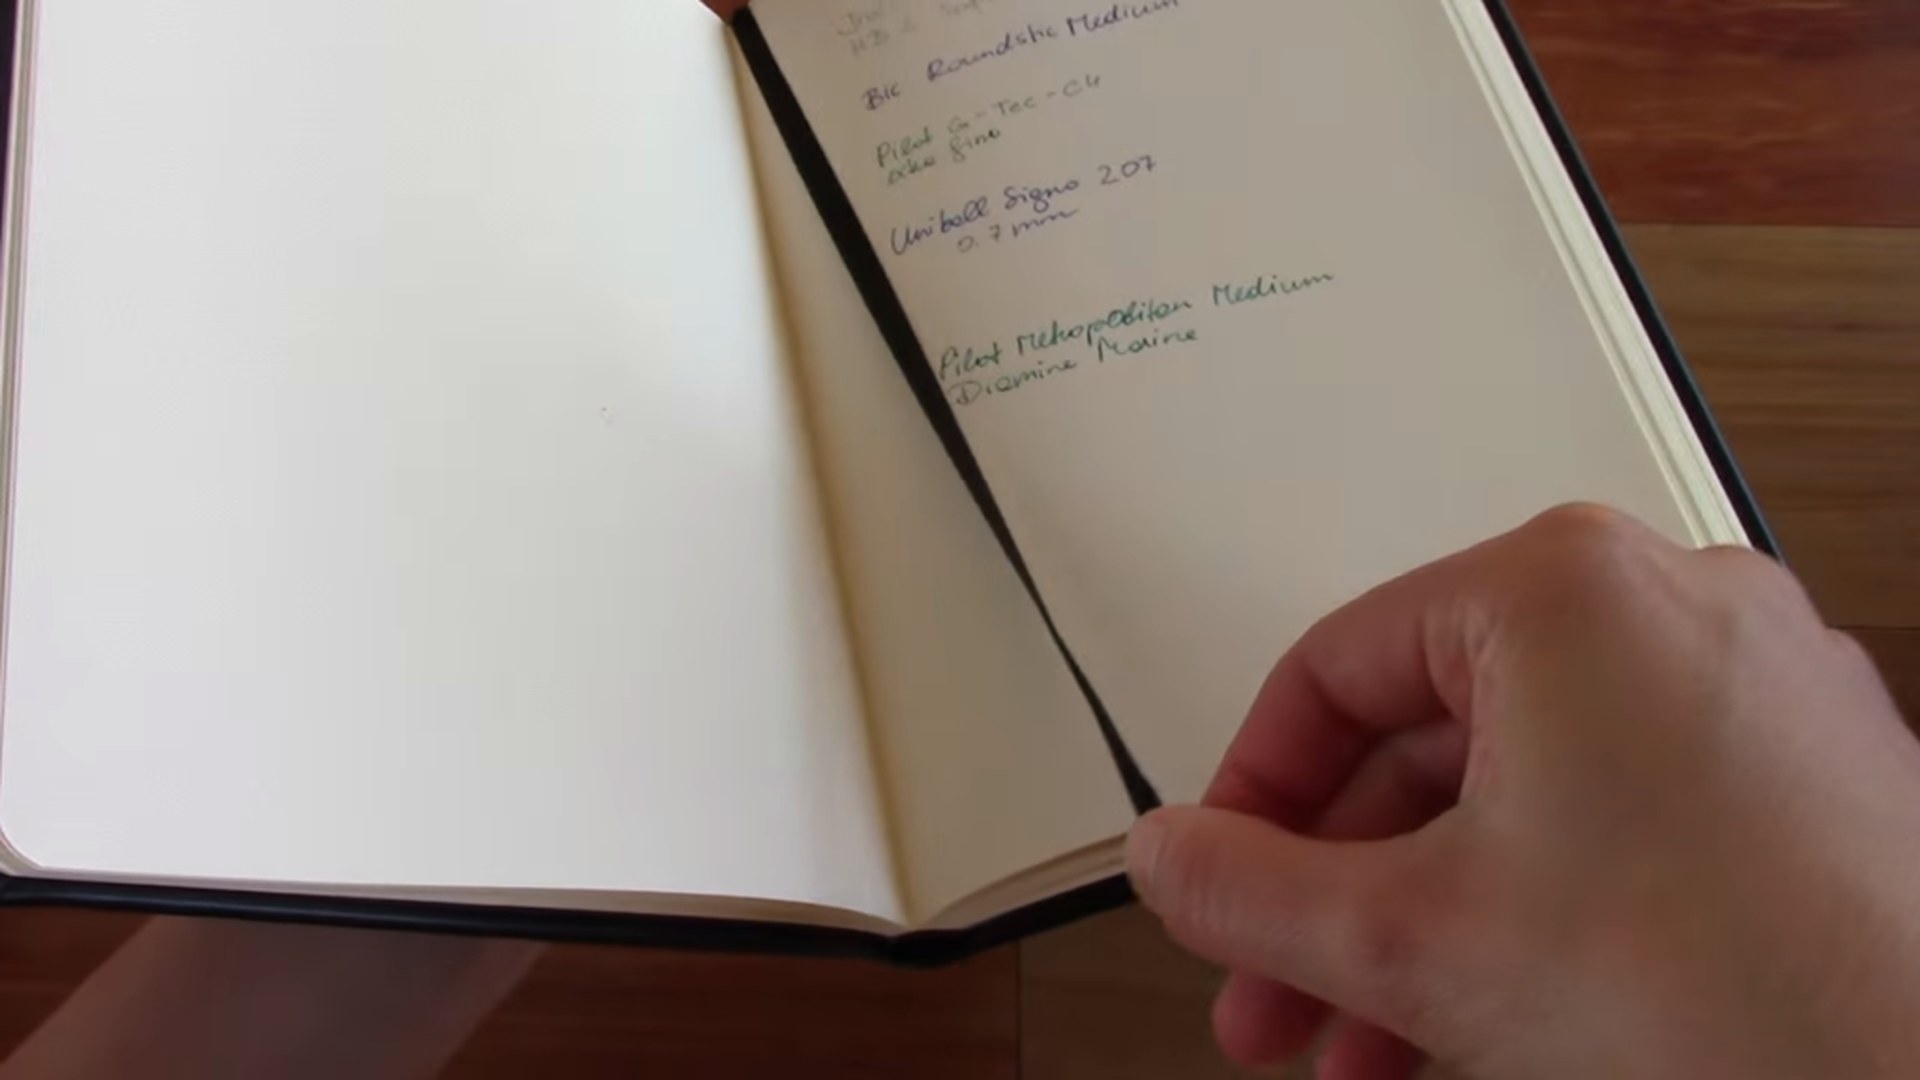 HB 2
Bic Roundstic Medium
Pilot G-Tec-C4
extra fine
Uniball Signo 207
0.7 mm
Pilot Metropolitan Medium
Diamine Marine